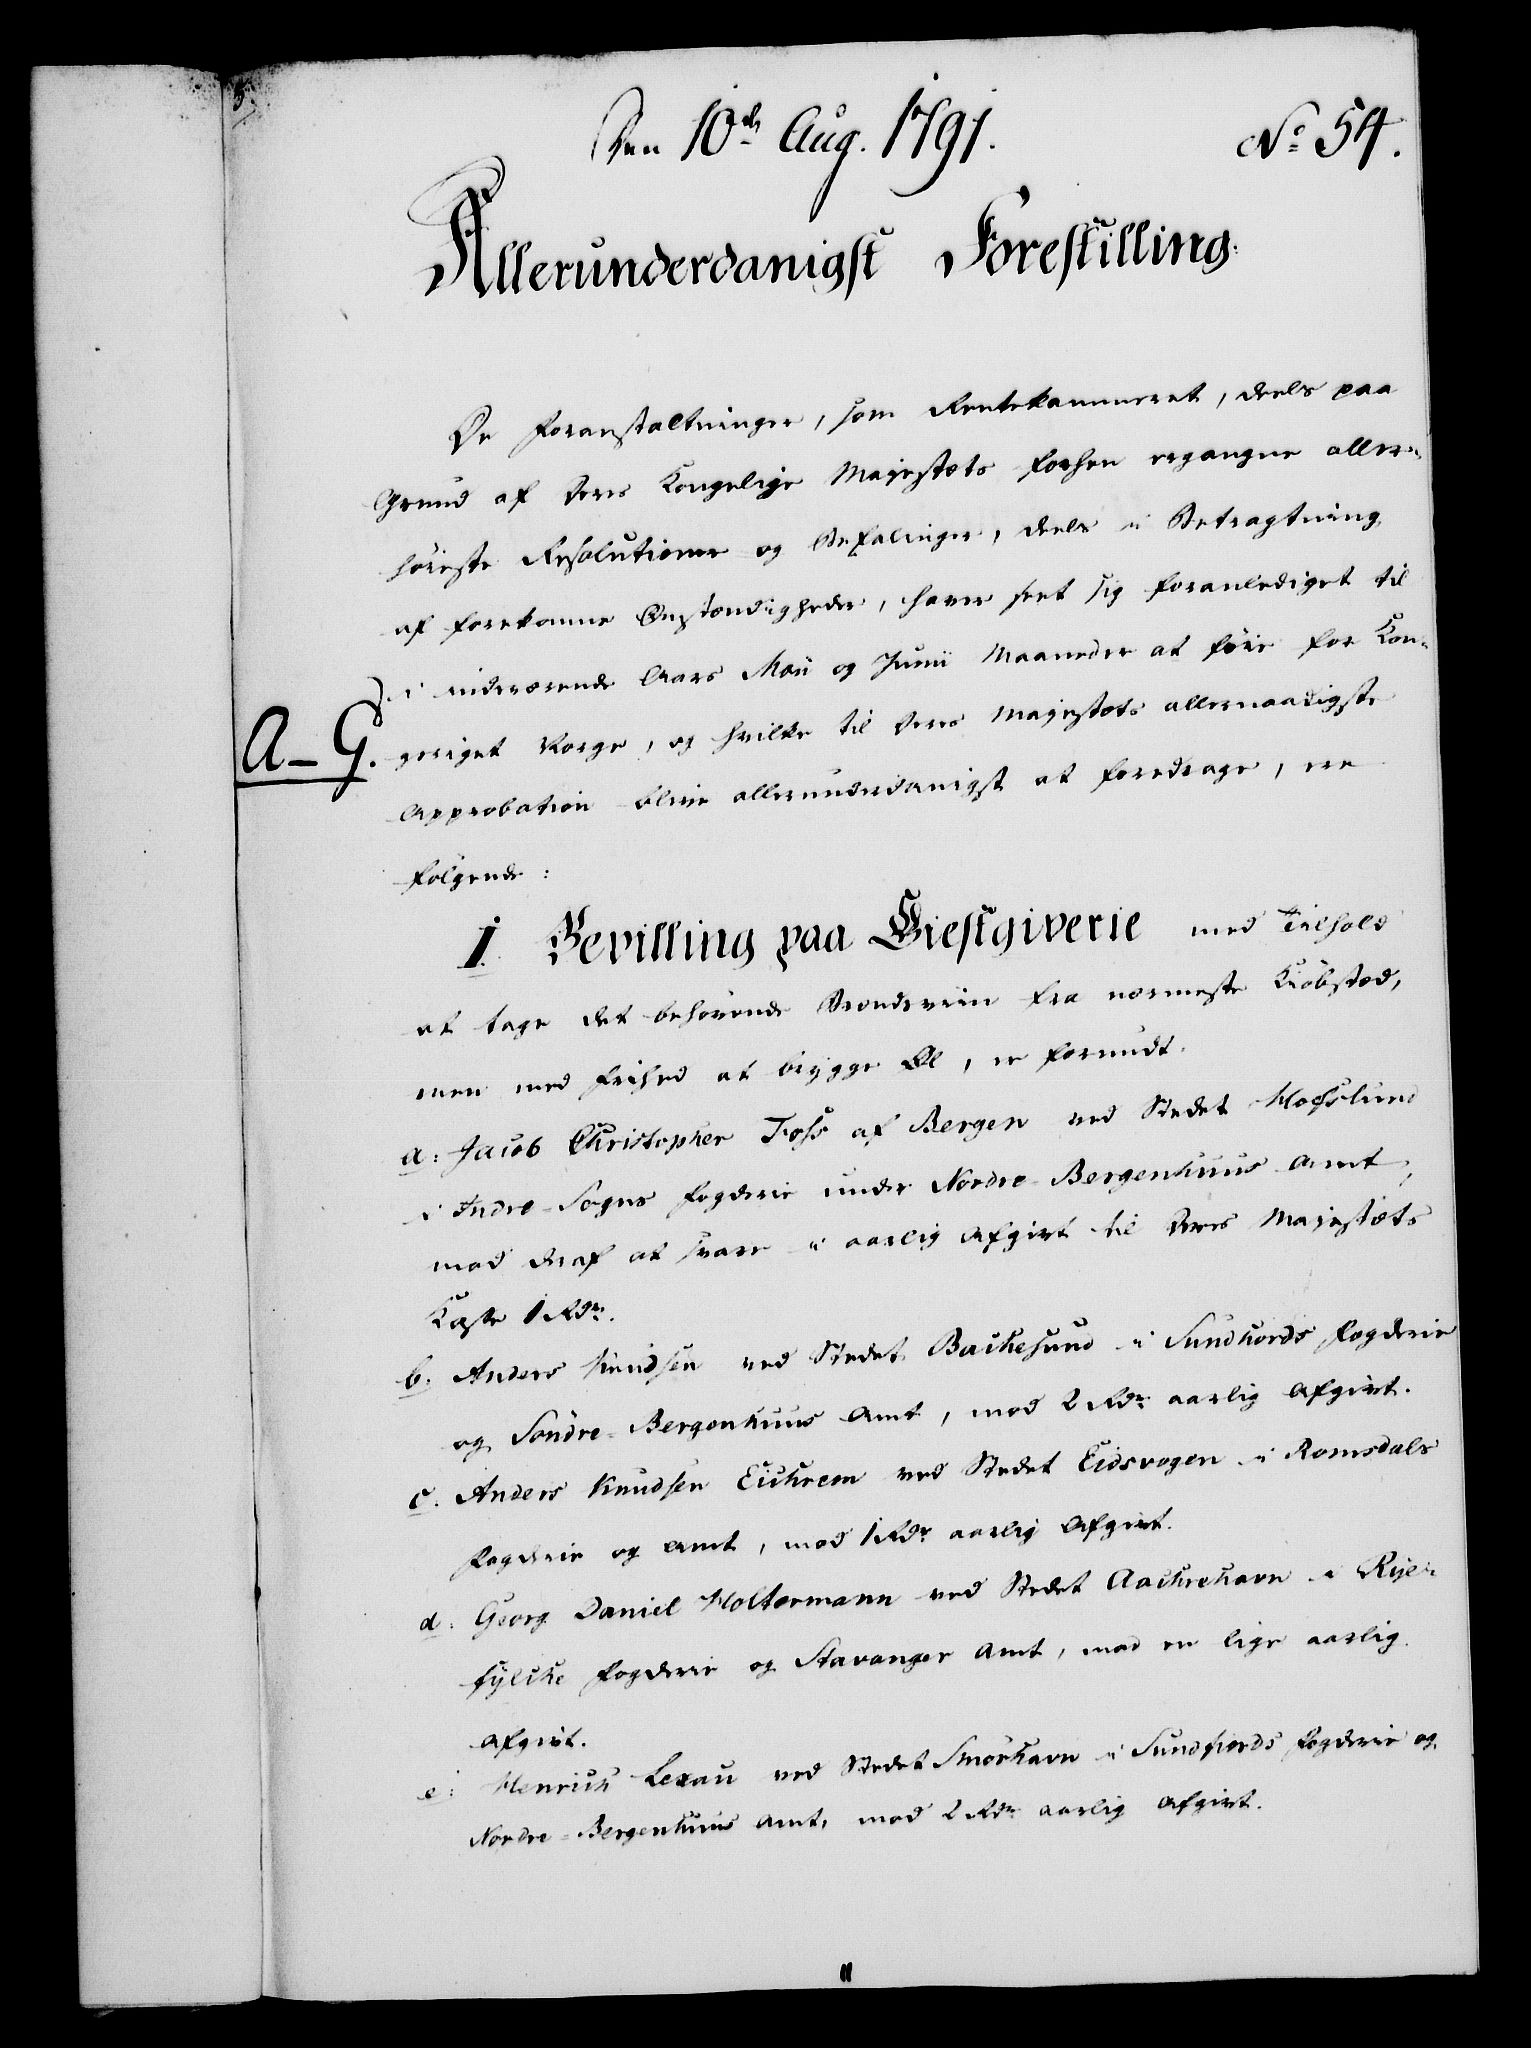 Den 10de Aug. 1791.
No 54.
Allerunderdanigst Forestilling.
De Foranstaltninger, som Rentekammeret, deels paa
Grund af Deres Kongelige Majestæts forhen ergangne aller-
høieste Resolutioner og Befalinger, deels i Betragtning
af forekomne Omstændigheder, haver seet sig foranlediget til
i indeværende Aars Maii og Junii Maaneder at føie for Kon-
A-G.
geriget Norge, og hvilke til Deres Majestæts allernaadigste
Approbation blive allerunderdanigst at foredrage, ere
følgende:
1. Bevilling paa Giestgiverie med Tilhold
at tage det behøvende Brændeviin fra nærmeste Kiøbstæd,
men med Frihed at brygge Øl, er forundt.
a: Jacob Christopher Foss af Bergen ved Stedet Hofslund
i Indre-Sogns Fogderie under Nordre-Bergenhuus Amt,
mod deraf at svare i aarlig Afgivt til Deres Majestæts
Kasse 1 Rdr.
b. Anders Knudsen ved Stedet Bachesund i Sundhords Fogderie
og Søndre-Bergenhuus Amt, mod 2 Rdr aarlig Afgivt.
c. Anders Knudsen Eichrem ved Stedet Eidsvogen i Romsdals
Fogderie og Amt, mod 1 Rdr aarlig Afgivt.
d. Georg Daniel Holtermann ved Stedet Aachrehavn i Rye-
fylcke Fogderie og Stavanger Amt, mod en lige aarlig
Afgivt.
e: Henrich Lexau ved Stedet Smørhavn i Sundfiords Fogderie og
Nordre-Bergenhuus Amt, mod 2 Rdr aarlig Afgivt.